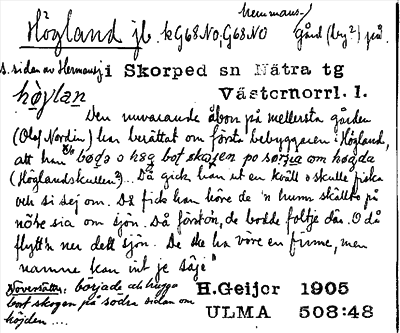 hemmans-
Högland jb. kG68NO, G68NO gård (by²) på
s. sidan av Hermansj. i Skorped sn Nätra tg
högḷan Västernorrl. l.
Den nuvarande åbon på mellersta gården
(Olof Nordin) har berättat om första bebyggaren i Högland,
att han bögd o hög bot skogen po sörsia om högda
(Höglandskullen?)... Då gick han ut en kväll o skulle fiska
och si sej om. Då fick han höre de 'n hunn skällt på
nöre sia om sjön. Då förstón, de bodde foltje där. O då
flytt'n ner dell sjön. De ska ha vöre en finne, men
namne kan int je säje"
Översättn: började att hugga H. Geijer 1905
bort skogen på södra sidan om ULMA 508:48
höjden ....